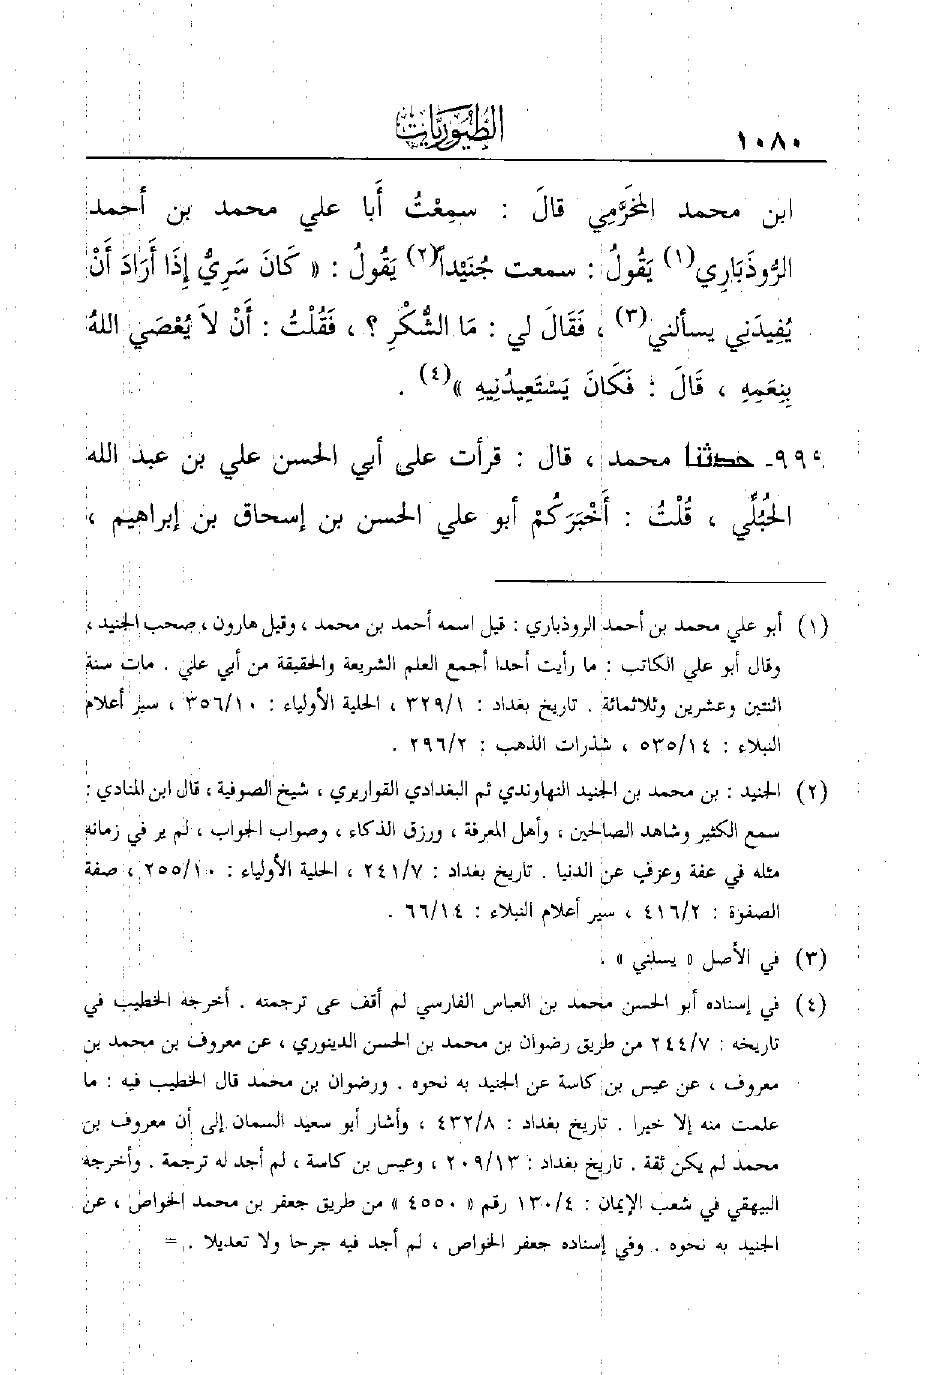 ١٠٨٠
الطيوريات
ابن محمد المخَرَّمِي قالَ : سمِعْتُ أَبا علي محمد بن أحمد
الرُّوذَبَارِي(١) يَقُولُ : سمعت جُنَيْداً(٢) يَقُولُ : « كَانَ سَرِيٌّ إِذَا أَرَادَ أَنْ
يُفِيدَنِي يسألني(٣) ، فَقَالَ لي : مَا الشُّكْرِ ؟ ، فَقُلْتُ : أَنْ لاَ يُعْصَي اللهُ
بِنِعَمِهِ ، قَالَ : فَكَانَ يَسْتَعِيدُنِيهِ »(٤) .
٩٩٠- حدثنا محمد ، قال : قرأت على أبي الحسن علي بن عبد الله
الجُبُلِّي ، قُلْتُ : أَخْبَرَكُمْ أبو علي الحسن بن إسحاق بن إبراهيم ،
(١) أبو علي محمد بن أحمد الروذباري : قيل اسمه أحمد بن محمد ، وقيل هارون ، صحب الجنيد ،
وقال أبو علي الكاتب : ما رأيت أحدا أجمع العلم الشريعة والحقيقة من أبي علي . مات سنة
اثنتين وعشرين وثلاثمائة . تاريخ بغداد : ٣٢٩/١ ، الحلية الأولياء : ٣٥٦/١٠ ، سير أعلام
النبلاء : ٥٣٥/١٤ ، شذرات الذهب : ٢٩٦/٢ .
(٢) الجنيد : بن محمد بن الجنيد النهاوندي ثم البغدادي القواريري ، شيخ الصوفية ، قال ابن المنادي :
سمع الكثير وشاهد الصالحين ، وأهل المعرفة ، ورزق الذكاء ، وصواب الجواب ، لم ير في زمانه
مثله في عفة وعزف عن الدنيا . تاريخ بغداد : ٢٤١/٧ ، الحلية الأولياء : ٢٥٥/١٠ ، صفة
الصفوة : ٤١٦/٢ ، سير أعلام النبلاء : ٦٦/١٤ .
(٣) في الأصل « يسلني » .
(٤) في إسناده أبو الحسن محمد بن العباس الفارسي لم أقف عى ترجمته . أخرجه الخطيب في
تاريخه : ٢٤٤/٧ من طريق رضوان بن محمد بن الحسن الدينوري ، عن معروف بن محمد بن
معروف ، عن عيس بن كاسة عن الجنيد به نحوه . ورضوان بن محمد قال الخطيب فيه : ما
علمت منه إلا خيرا . تاريخ بغداد : ٤٣٢/٨ ، وأشار أبو سعيد السمان إلى أن معروف بن
محمد لم يكن ثقة . تاريخ بغداد : ٢٠٩/١٣ ، وعيس بن كاسة ، لم أجد له ترجمة . وأخرجه
البيهقي في شعب الإيمان : ١٣٠/٤ رقم « ٤٥٥٠ » من طريق جعفر بن محمد الخواص ، عن
الجنيد به نحوه . وفي إسناده جعفر الخواص ، لم أجد فيه جرحا ولا تعديلا . =